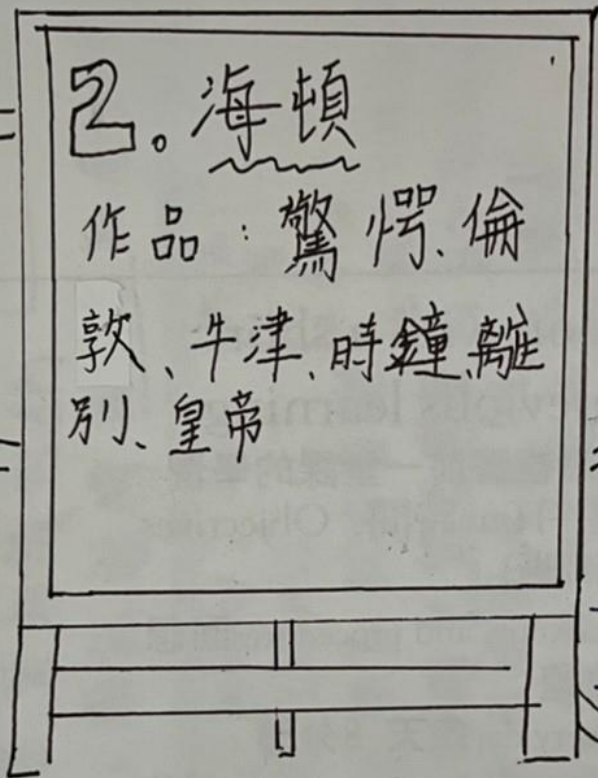 2。海頓
作品：驚愕、倫
敦、牛津、時鐘、離
別、皇帝